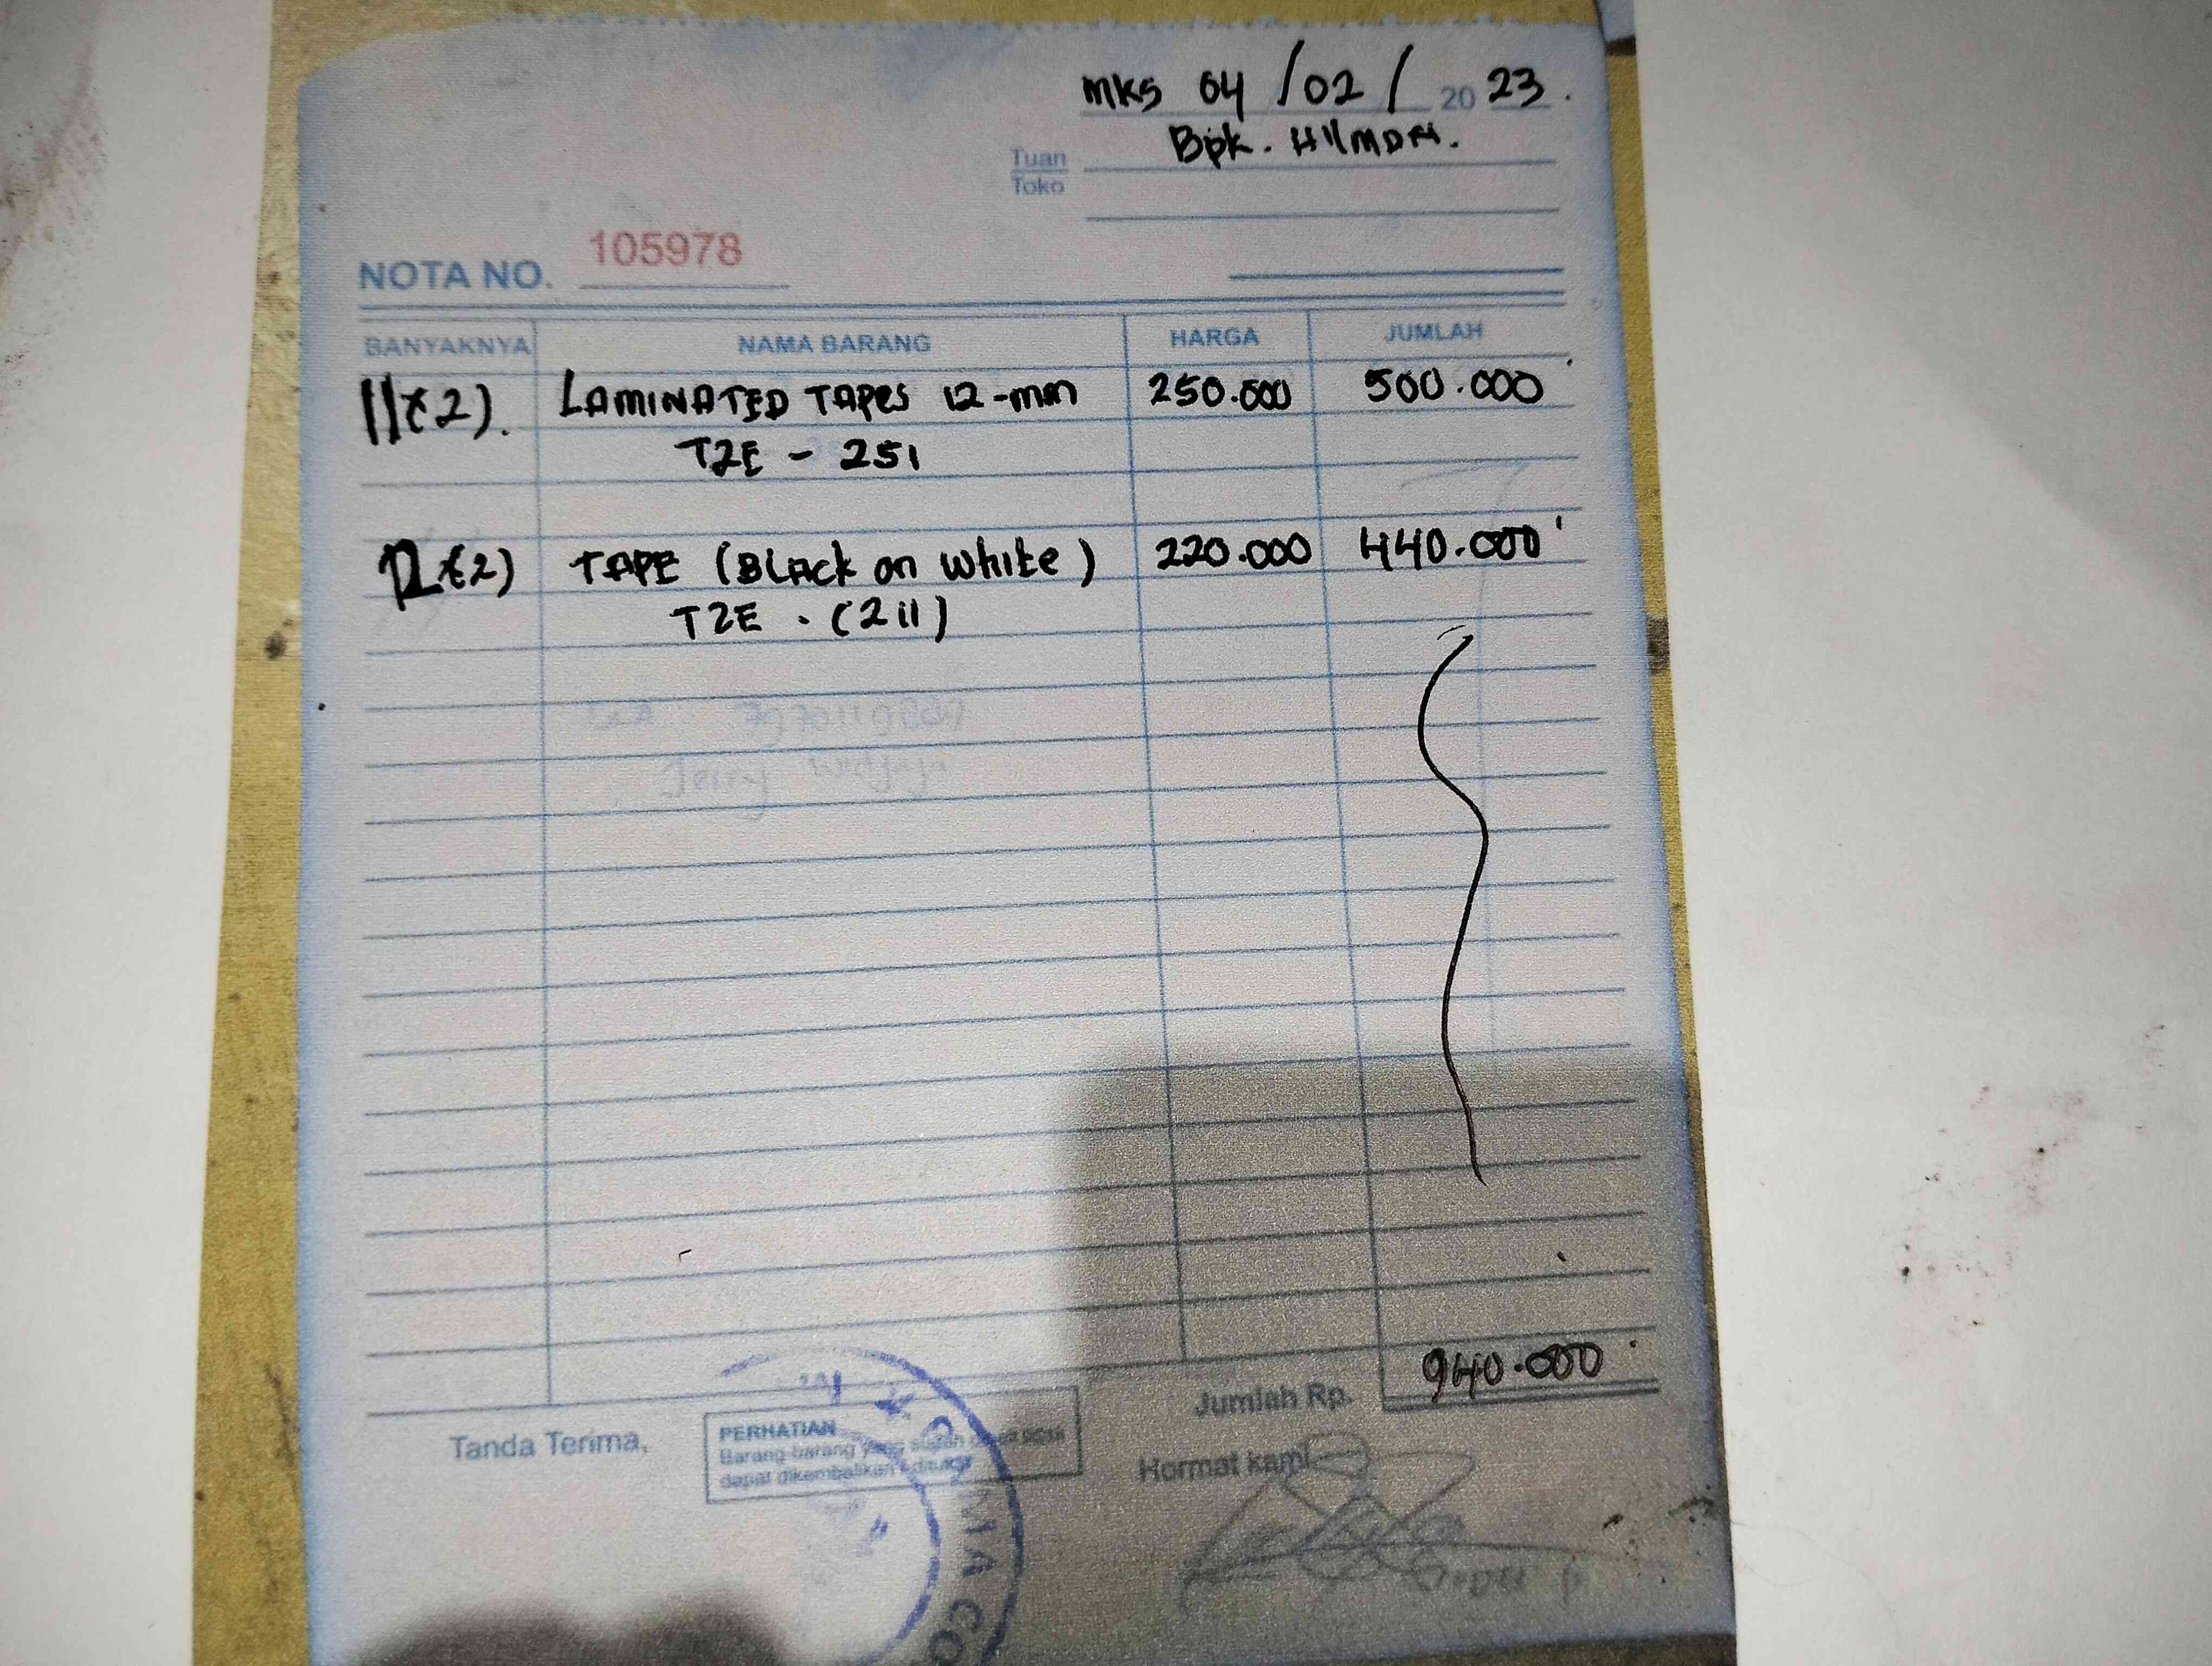 mks 04 / 02 / 20 23.
Tuan Bpk.
Toko
NOTA NO. 105978
BANYAKNYA NAMA BARANG HARGA JUMLAH
(2). LAMINATED TAPES 12-mm 250.000 500.000
TZE - 251
(2) TAPE (Black on white) 220.000 440.000
TZE . (211)
Jumlah Rp. 940.000
Tanda Terima,
PERHATIAN
Barang-barang yang sudah
dapat dikembalikan
Hormat kami